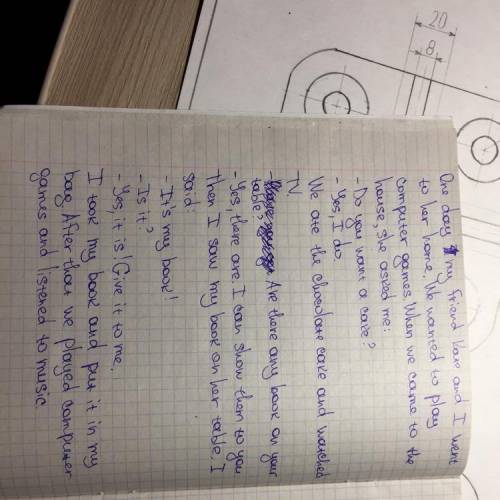 One day my friend and I went
to her home. We wanted to play
computer games. When we came to the
house, she asked me:
- Do you want a cake?
- Yes, I do.
We ate the chocolate cake and watched
TV
- Are there any book on your
table?
- Yes, there are. I can show them to you
Then I saw my book on her table. I
said:
- It's my book!
- Is it?
- Yes, it is! Give it to me.
I took my book and put it in my
bag. After that we played computer
games and listened to music
20
8